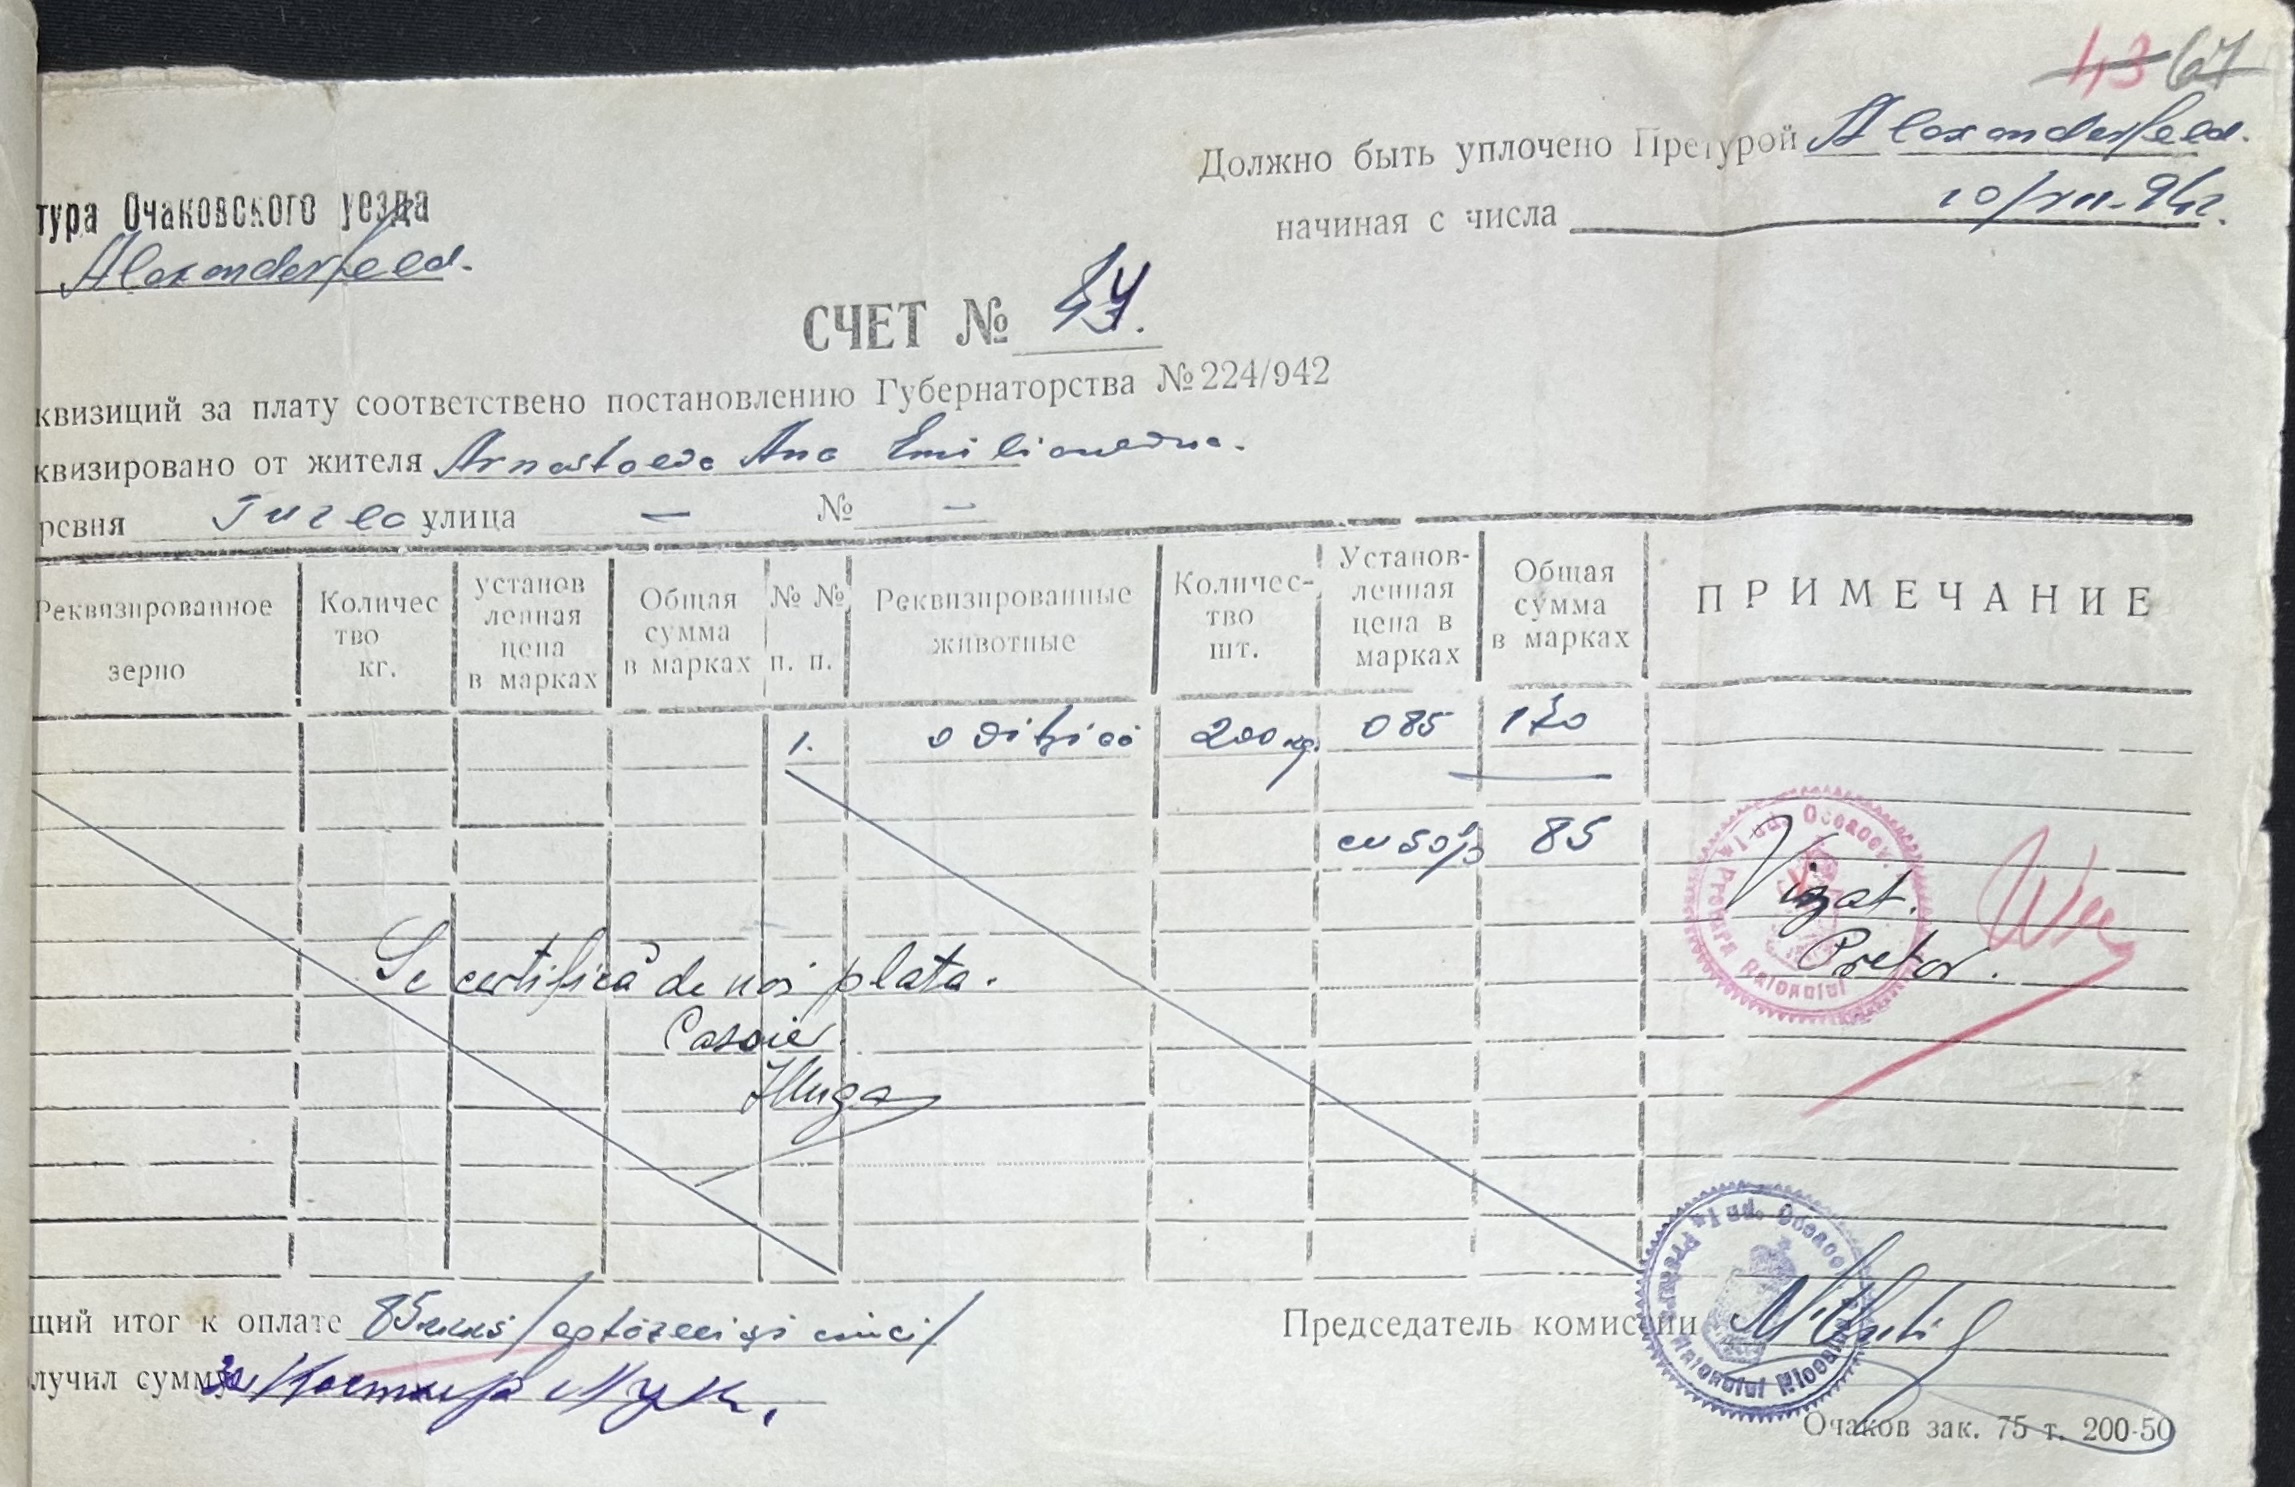 43 67
Должно быть уплочено Претурой Alexanderfeld.
начиная с числа 10/XII-942.
тура Очаковского уезда
Alexanderfeld.
СЧЕТ №
квизиций за плату соответствено постановлению Губернаторства №224/942
квизировано от жителя Arnastoeva Ana Emilianovna.
ревня улица — № —
Реквизированное зерно Количес тво кг. установ ленная цена в марках Общая сумма в марках № № п. п. Реквизированные животные Количес- тво шт. Установ- ленная цена в марках Общая сумма в марках ПРИМЕЧАНИЕ
1. o vițică 200 кg. 085 170
cu 50% 85
Jud. Oceacov. Pretura Raionului
Vizat.
Pretor.
Se certifică de noi plata.
Casier.
щий итог к оплате 85 /optzeci și cinci/
Председатель комиссии
Jud. Oceacov Pretura Raionului
лучил сумму
Очаков зак. 75 т. 200-50